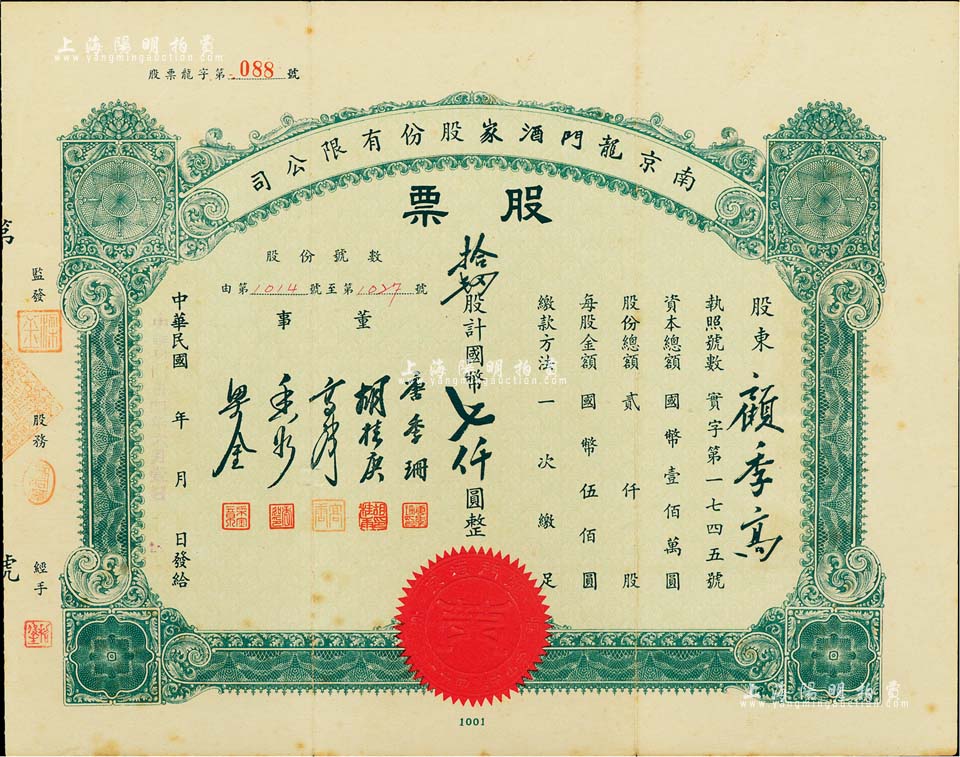 上海陽明拍賣
www.yangmingauction.com
股票龍字第088號
南京龍門酒家股份有限公司
股票
股東 顧季高
執照號數 實字第一七四五號
資本總額 國幣壹佰萬圓
股份總額 貳仟股
每股金額 國幣伍佰圓
繳款方法 一次繳足
拾四股計國幣七仟圓整
股份號數
由第1014號至第1027號
董事
唐季珊
胡桂庚
中華民國 年 月 日發給
監發
股務
經手
第
號
上海陽明拍賣
www.yangmingauction.com
上海陽明拍賣
www.yangmingauction.com
1001